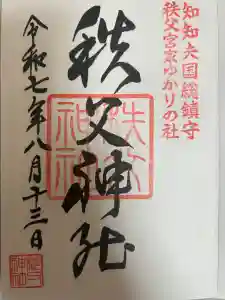 知知夫国総鎮守
秩父宮家ゆかりの社
秩父神社
令和七年八月十三日
秩父
神社